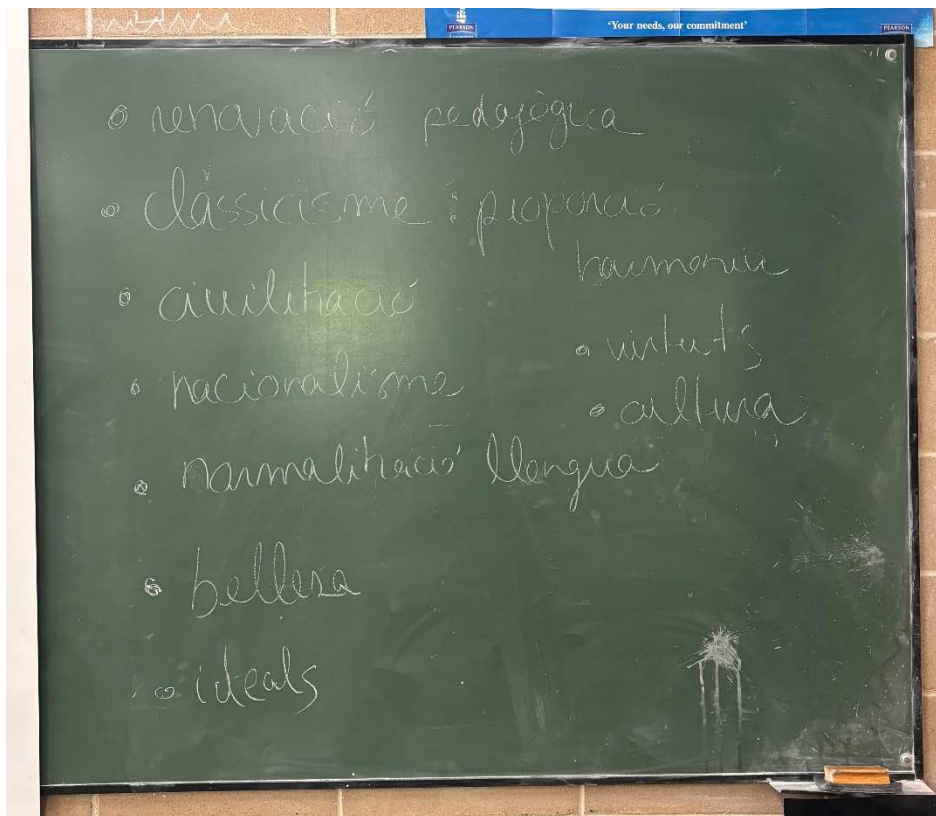 PEARSON
'Your needs, our commitment'
PEARSON
• renovació pedagògica
• classicisme : proporció
harmonia
• civilització
• virtuts
• nacionalisme
• cultura
• normalització llengua
• bellesa
• ideals